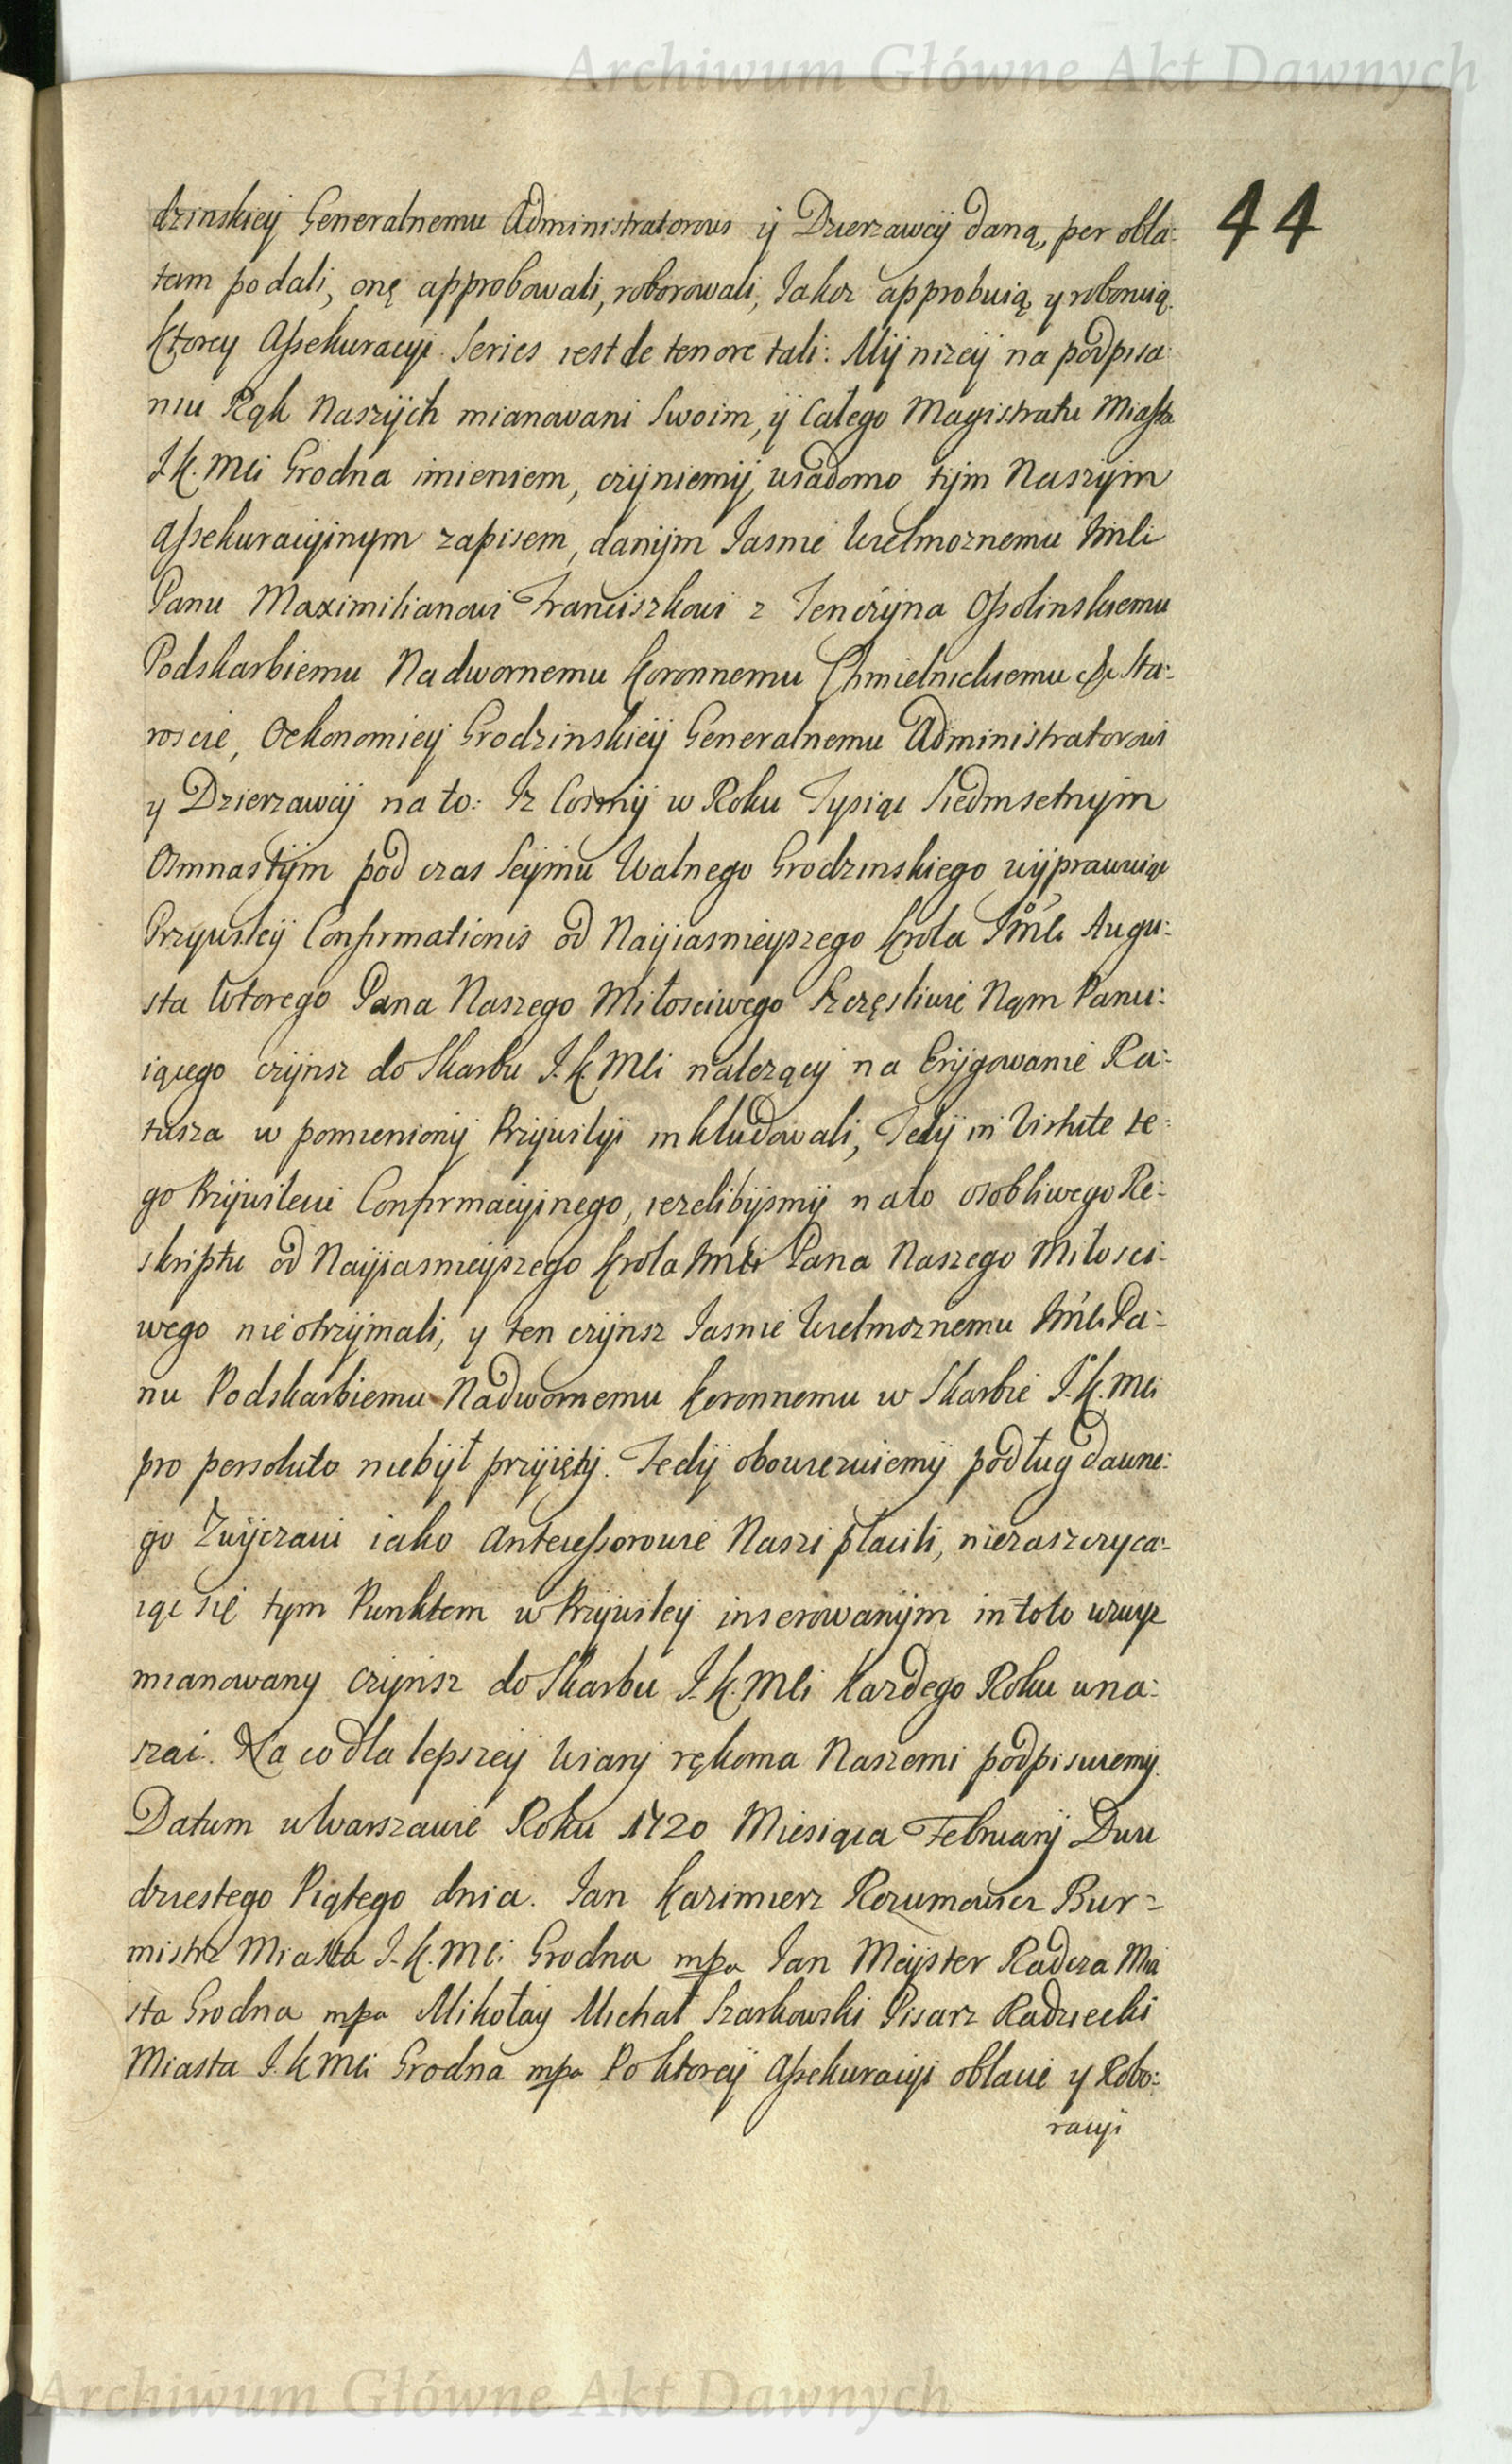 Archiwum Główne Akt Dawnych
44
dzinskiey Generalnemu Administratorowi ÿ Dzierzawcÿ daną, per obla:
tam podali, onę approbowali, roborowali, Jakoz approbuią y roboruią.
Ktorey Assekuracyi Series iest de tenore tali: Mÿ nizeÿ na podpisa
niu Rąk Naszÿch mianowani Swoim, ÿ Całego Magistratu Miasta
J.K.Mci Grodna imieniem, czÿniemÿ wiadomo tÿm Naszÿm
Assekuracÿinym zapisem, danÿm Jasnie Wielmoznemu Jmci
Panu Maximilianowi Franciszkowi z Tenczÿna Ossolinskiemu
Podskarbiemu Nadwornemu Koronnemu Chmielnickiemu &c Sta:
roscie, Oekonomiey Grodzinskieÿ Generalnemu Administratorowi
y Dzierzawcÿ na to: Iz Cosmÿ w Roku Tysiąc Siedmsetnÿm
Osmnastÿm pod czas Seÿmu Walnego Grodzinskiego wÿprawuiąc
Przywiley Confirmationis od Naÿiasnieyszego Krola Jmci Augu:
sta Wtorego Pana Naszego Miłosciwego Szczęsliwie Nąm Panu:
iącego czÿnsz do Skarbu J.K.Mci nalezący na Erÿgowanie Ra:
tusza w pomienionÿ Przÿwilÿi inkludowali, Tedÿ in Virtute te:
go Przÿwileiu Confirmacÿinego, iezelibÿsmÿ na to osobliwego Re:
skriptu od Naÿiasnieÿszego Krola Jmci Pana Naszego Miłosci:
wego nie otrzÿmali, y ten czÿnsz Jasnie Wielmoznemu Jmci Pa:
nu Podskarbiemu Nadwornemu Koronnemu w Skarbie J.K.Mci
pro persoluto niebÿł przÿiętÿ. Tedÿ obowiezuiemÿ podług dawne:
go Zwÿczaiu iako Antecessorowie Naszi płacili, niezaszczyca:
iąc się tym Punktem w Przÿwiley inserowanÿm in toto wzwyz
mianowany czÿnsz do Skarbu J.K.Mci Kazdego Roku wna:
szac. Na co dla lepszeÿ Wiarÿ rękoma Naszemi podpisuiemÿ.
Datum w Warszawie Roku 1720 Miesiąca Februarÿ Dwu
dziestego Piątego dnia. Jan Kazimierz Rozumowicz Bur=
mistrz Miasta J.K.Mci Grodna mpa Jan Meÿster Radcza Mia
sta Grodna mpa Mikołaÿ Michał Szarkowski Pisarz Radziecki
Miasta J.K.Mci Grodna mpa Po ktoreÿ Assekuracÿi oblacie y Robo:
racÿi
Archiwum Główne Akt Dawnych